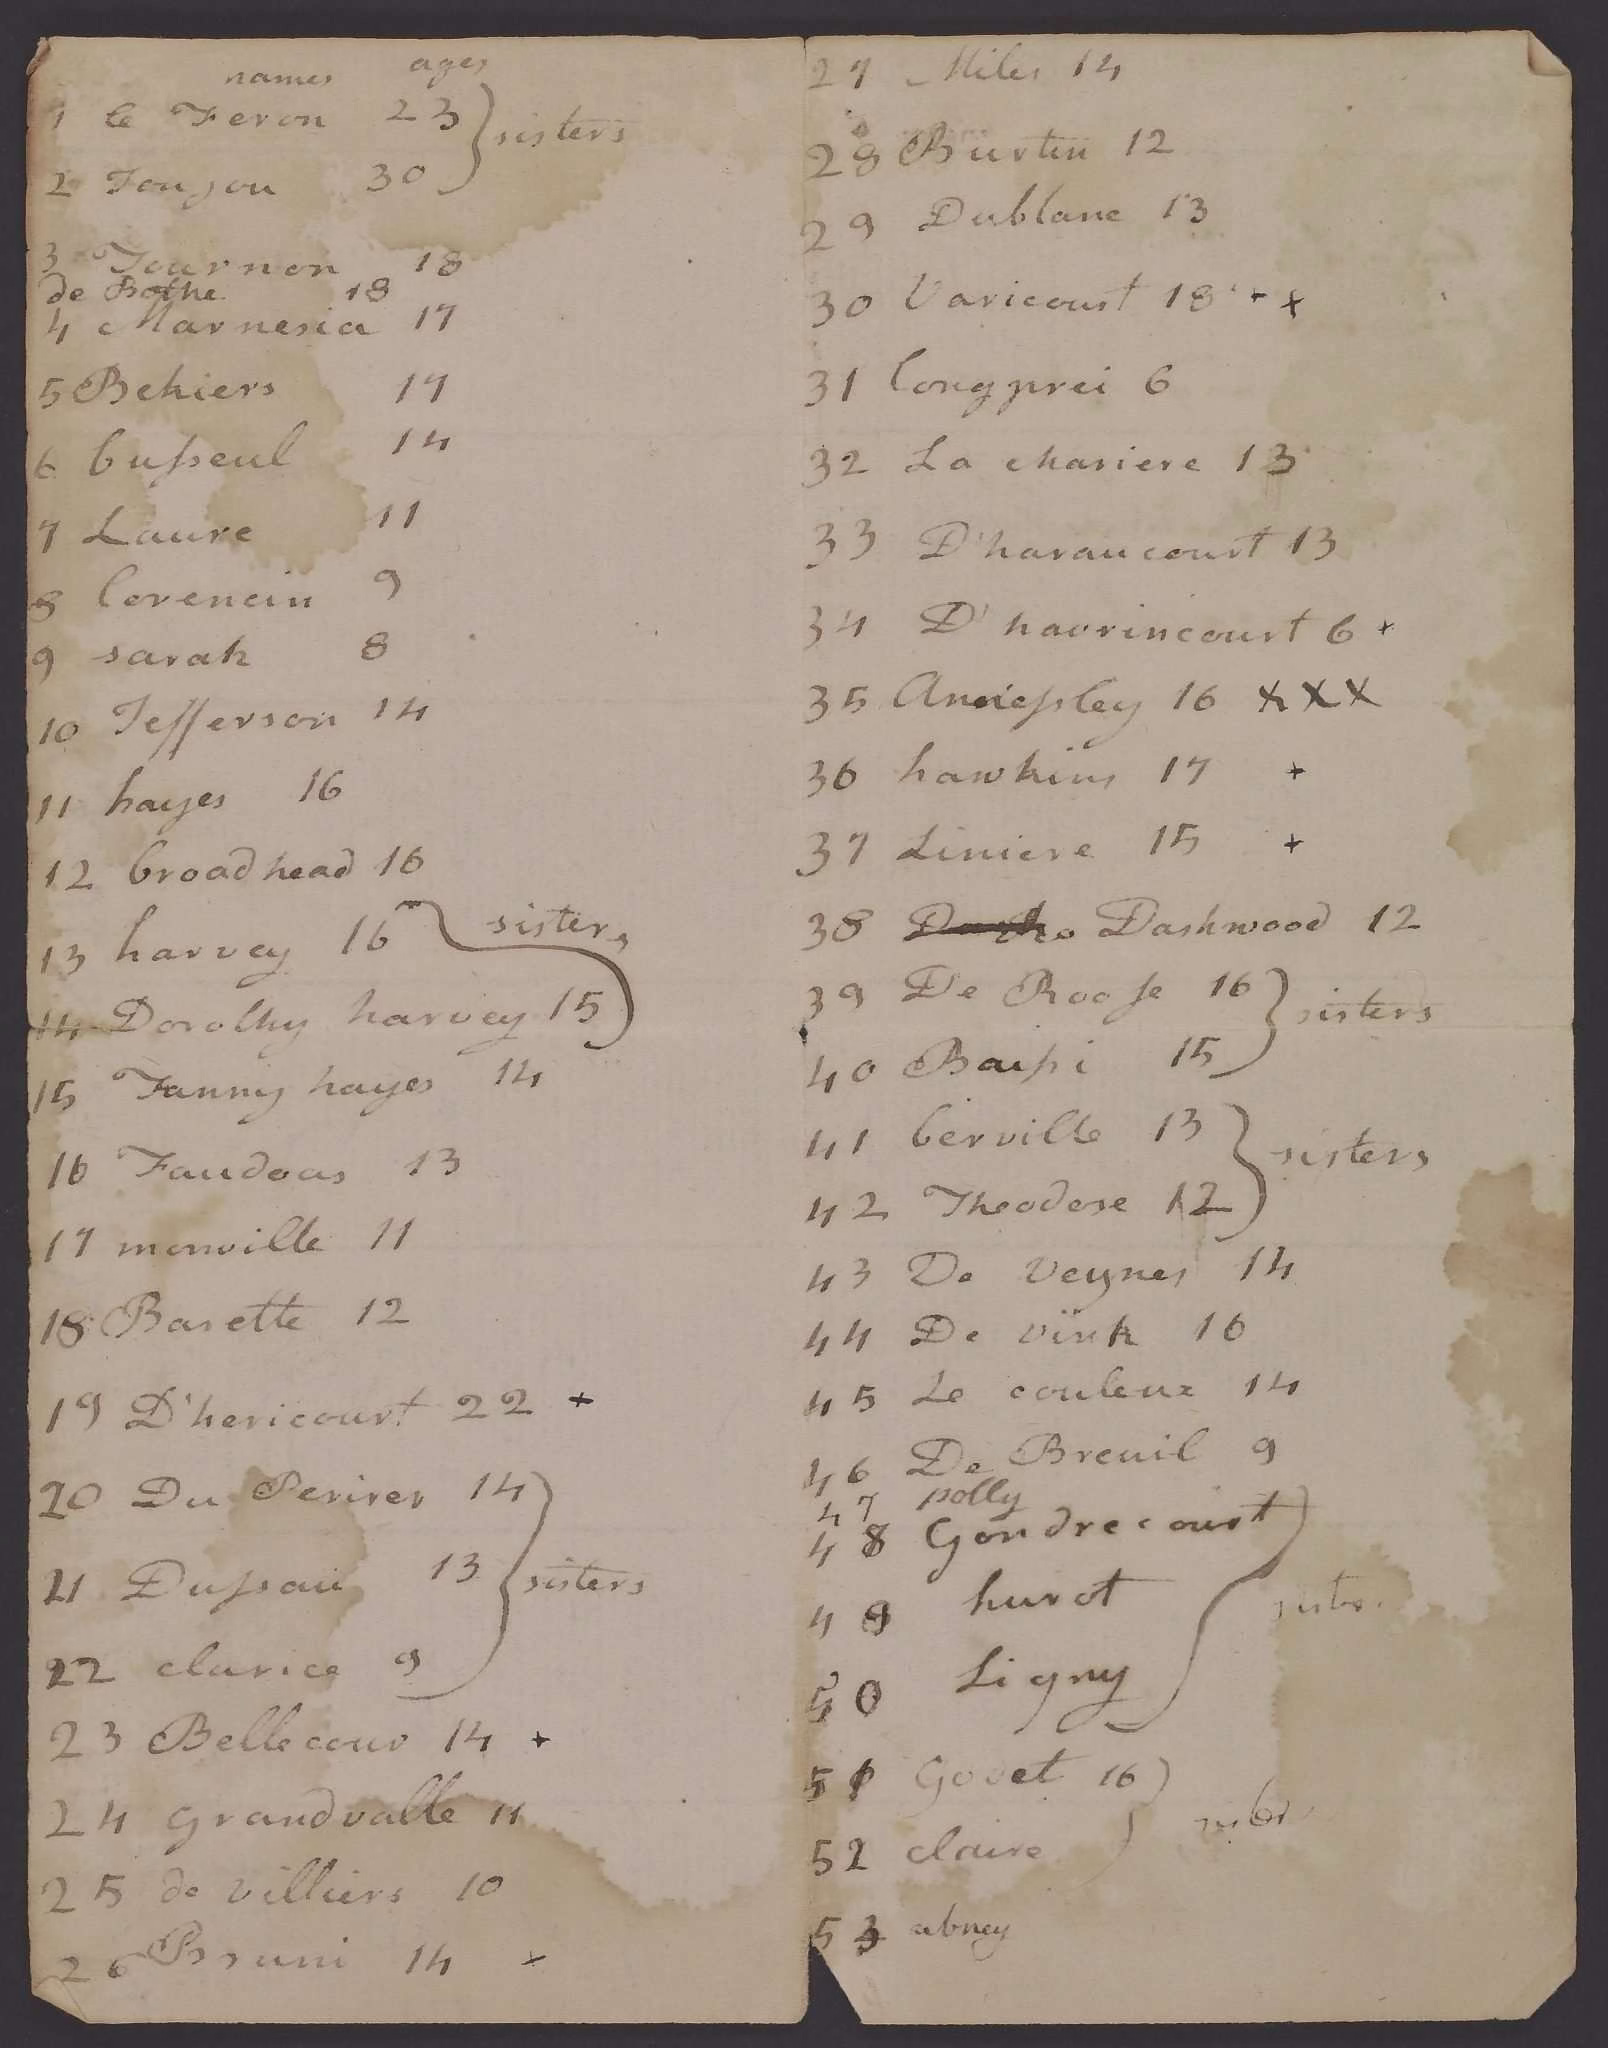 names ages
1 le Feron 23
sisters
2 Foujou 30
3 Tournon 18
de Bothe 18
4 Marnesia 17
5 Behiers 17
6 bufseul 14
7 Laure 11
8 Corencin 9
9 sarah 8
10 Jefferson 14
11 hayes 16
12 broadhead 16
13 harvey 16 sisters
14 Dorothy harvey 15
15 Fanny hayes 14
16 Faudoas 13
17 monville 11
18 Basette 12
19 D'hericourt 22 +
20 Du Perirer 14
21 Dufsau 13 sisters
22 clarice 9
23 Bellecour 14 +
24 grandvalle 11
25 de villiers 10
26 Bruni 14 +
27 Miles 14
28 Burtin 12
29 Dublanc 13
30 Varicourt 18 + +
31 longprei 6
32 La chariere 13
33 D'haraucourt 13
34 D'havrincourt 6 +
35 Anniefsley 16 x x x
36 hawkins 17 +
37 Liniere 15 +
38 Dashwood 12
39 De Roofse 16
sisters
40 Baifsi 15
41 berville 13
sisters
42 Theodore 12
43 De Veynes 14
44 De vink 16
45 Le couleux 14
46 De Breuil 9
47 polly
48 Gondrecourt
49 hurot
50 Ligny
51 Govet 16
52 claire
53 abney